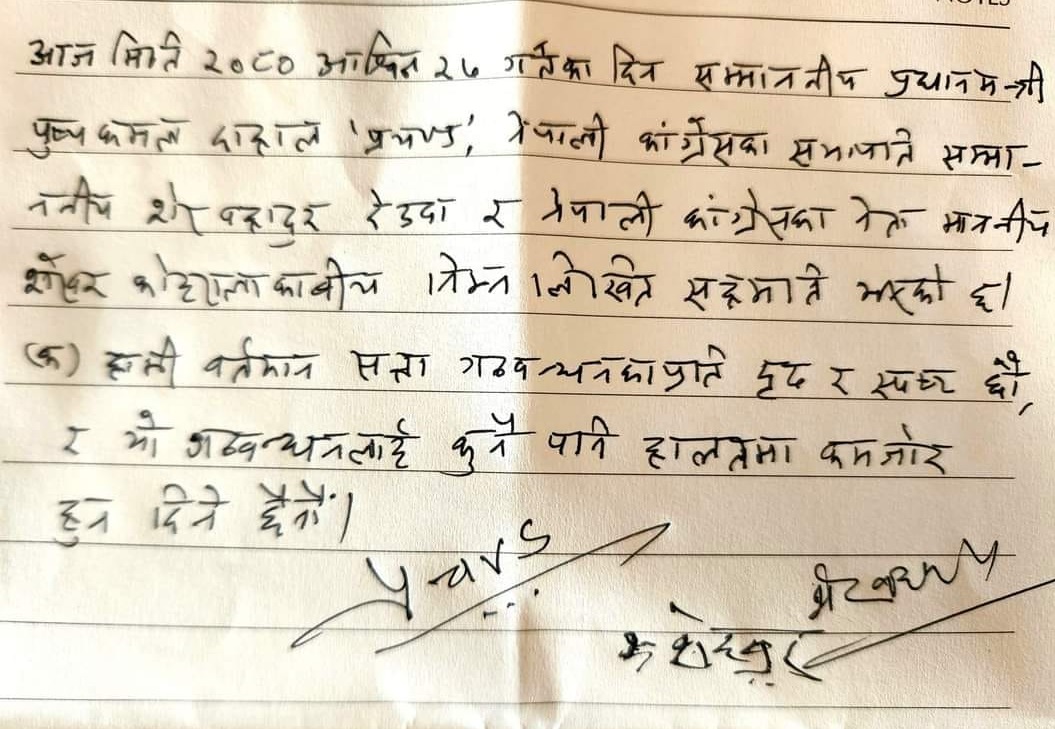 NOTES
आज मिति २०८० आश्विन २७ गतेका दिन सम्माननीय प्रधानमन्त्री
पुष्पकमल दाहाल 'प्रचण्ड', नेपाली कांग्रेसका सभापति सम्मा-
ननीय शेरबहादुर देउवा र नेपाली कांग्रेसका नेता माननीय
शेखर कोइराला का बीच निम्न लिखित सहमति भएको छ।
(क) हामी वर्तमान सत्ता गठबन्धनका प्रति दृढ र स्पष्ट छौं,
र यो गठबन्धनलाई कुनै पनि हालतमा कमजोर
हुन दिने छैनौं।
प्रचण्ड